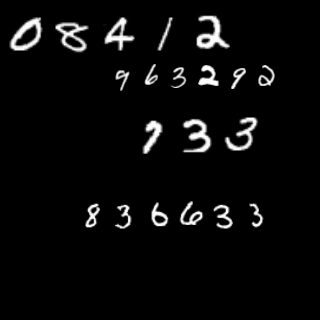 08412
963292
933
836633